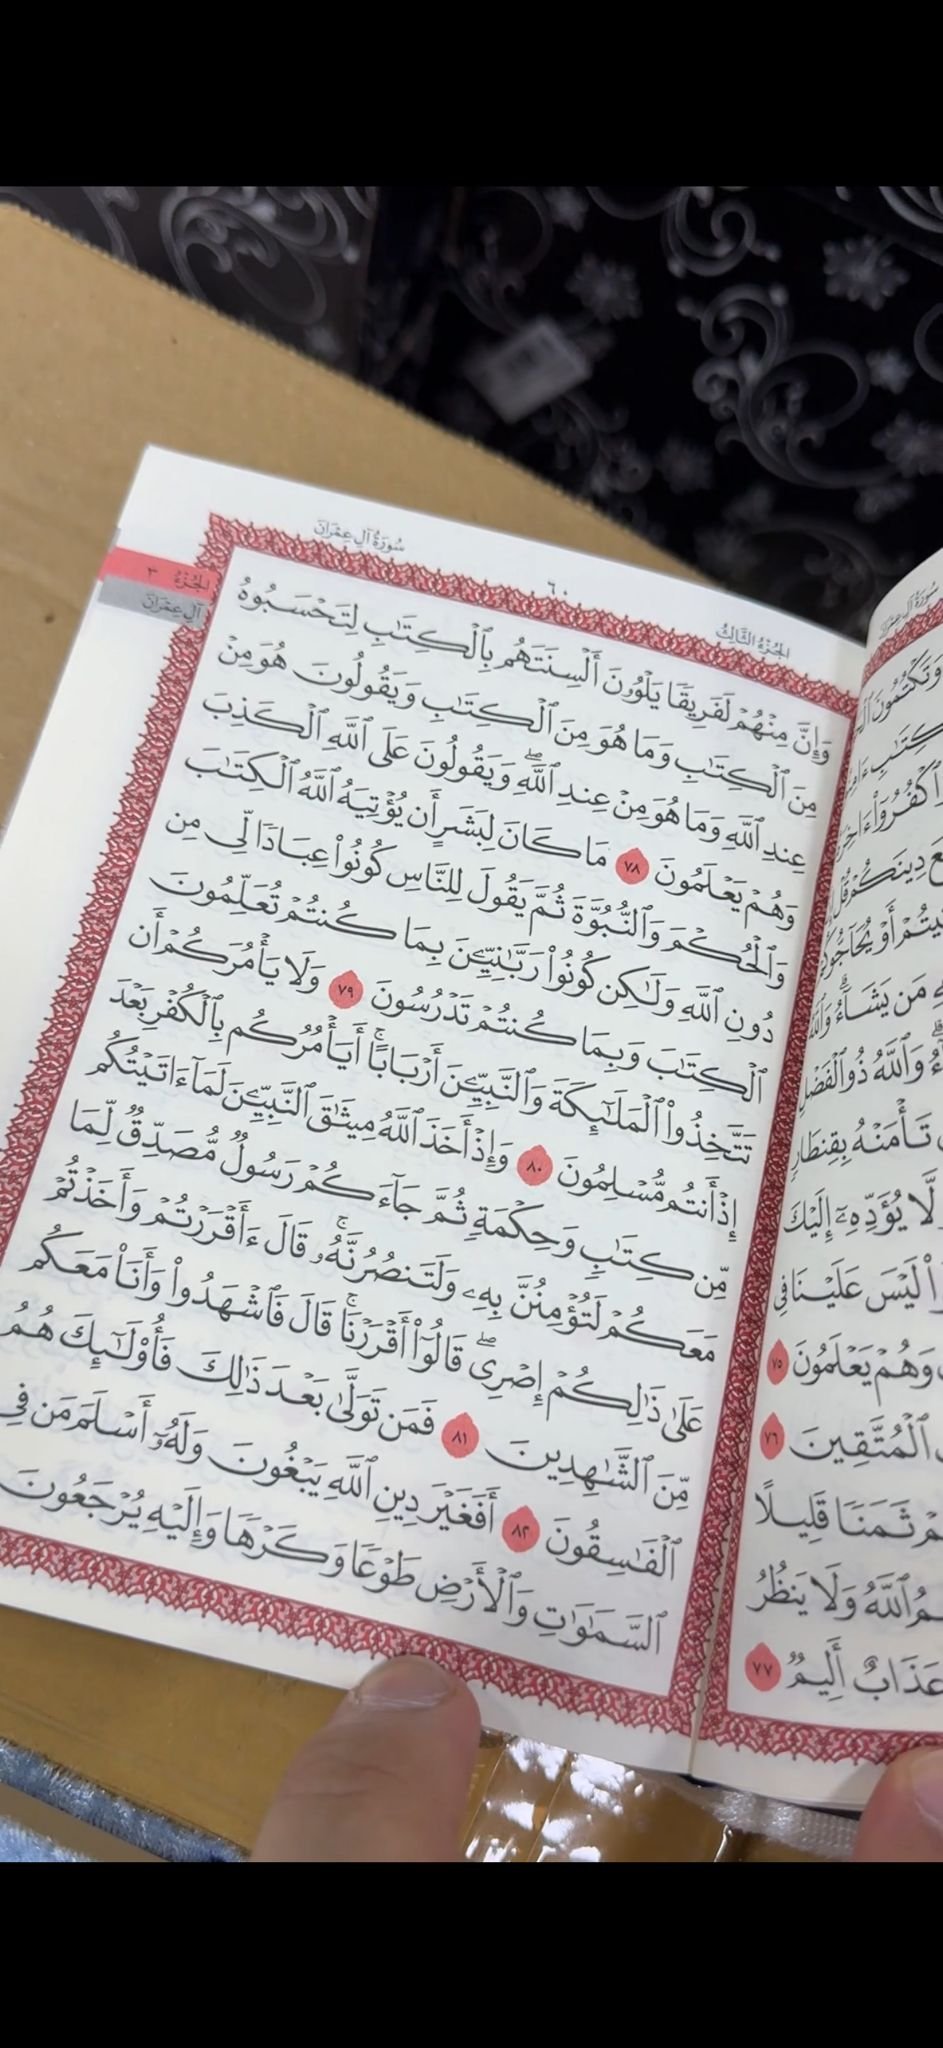 سُورَةُ آلِ عِمْرَانَ
٦٠
الجُزْءُ الثَّالِثُ
الجُزْءُ ٣
آلِ عِمْرَانَ
وَإِنَّ مِنْهُمْ لَفَرِيقًا يَلْوُۥنَ أَلْسِنَتَهُم بِٱلْكِتَٰبِ لِتَحْسَبُوهُ
مِنَ ٱلْكِتَٰبِ وَمَا هُوَ مِنَ ٱلْكِتَٰبِ وَيَقُولُونَ هُوَ مِنْ
عِندِ ٱللَّهِ وَمَا هُوَ مِنْ عِندِ ٱللَّهِۖ وَيَقُولُونَ عَلَى ٱللَّهِ ٱلْكَذِبَ
وَهُمْ يَعْلَمُونَ ٧٨ مَا كَانَ لِبَشَرٍ أَن يُؤْتِيَهُ ٱللَّهُ ٱلْكِتَٰبَ
وَٱلْحُكْمَ وَٱلنُّبُوَّةَ ثُمَّ يَقُولَ لِلنَّاسِ كُونُوا۟ عِبَادًا لِّى مِن
دُونِ ٱللَّهِ وَلَٰكِن كُونُوا۟ رَبَّٰنِيِّـۧنَ بِمَا كُنتُمْ تُعَلِّمُونَ
ٱلْكِتَٰبَ وَبِمَا كُنتُمْ تَدْرُسُونَ ٧٩ وَلَا يَأْمُرَكُمْ أَن
تَتَّخِذُوا۟ ٱلْمَلَٰٓئِكَةَ وَٱلنَّبِيِّـۧنَ أَرْبَابًاۗ أَيَأْمُرُكُم بِٱلْكُفْرِ بَعْدَ
إِذْ أَنتُم مُّسْلِمُونَ ٨٠ وَإِذْ أَخَذَ ٱللَّهُ مِيثَٰقَ ٱلنَّبِيِّـۧنَ لَمَآ ءَاتَيْتُكُم
مِّن كِتَٰبٍ وَحِكْمَةٍ ثُمَّ جَآءَكُمْ رَسُولٌ مُّصَدِّقٌ لِّمَا
مَعَكُمْ لَتُؤْمِنُنَّ بِهِۦ وَلَتَنصُرُنَّهُۥۚ قَالَ ءَأَقْرَرْتُمْ وَأَخَذْتُمْ
عَلَىٰ ذَٰلِكُمْ إِصْرِىۖ قَالُوٓا۟ أَقْرَرْنَاۚ قَالَ فَٱشْهَدُوا۟ وَأَنَا۠ مَعَكُم
مِّنَ ٱلشَّٰهِدِينَ ٨١ فَمَن تَوَلَّىٰ بَعْدَ ذَٰلِكَ فَأُو۟لَٰٓئِكَ هُمُ
ٱلْفَٰسِقُونَ ٨٢ أَفَغَيْرَ دِينِ ٱللَّهِ يَبْغُونَ وَلَهُۥٓ أَسْلَمَ مَن فِى
ٱلسَّمَٰوَٰتِ وَٱلْأَرْضِ طَوْعًا وَكَرْهًا وَإِلَيْهِ يُرْجَعُونَ
سُورَةُ آلِ عِمْرَانَ
وَتَكْتُمُونَ
مَن يَشَآءُۗ
وَٱللَّهُ ذُو ٱلْفَضْلِ
تَأْمَنْهُ بِقِنطَارٍ
لَّا يُؤَدِّهِۦٓ إِلَيْكَ
لَيْسَ عَلَيْنَا فِى
وَهُمْ يَعْلَمُونَ ٧٥
ٱلْمُتَّقِينَ ٧٦
ثَمَنًا قَلِيلًا
ٱللَّهُ وَلَا يَنظُرُ
عَذَابٌ أَلِيمٌ ٧٧